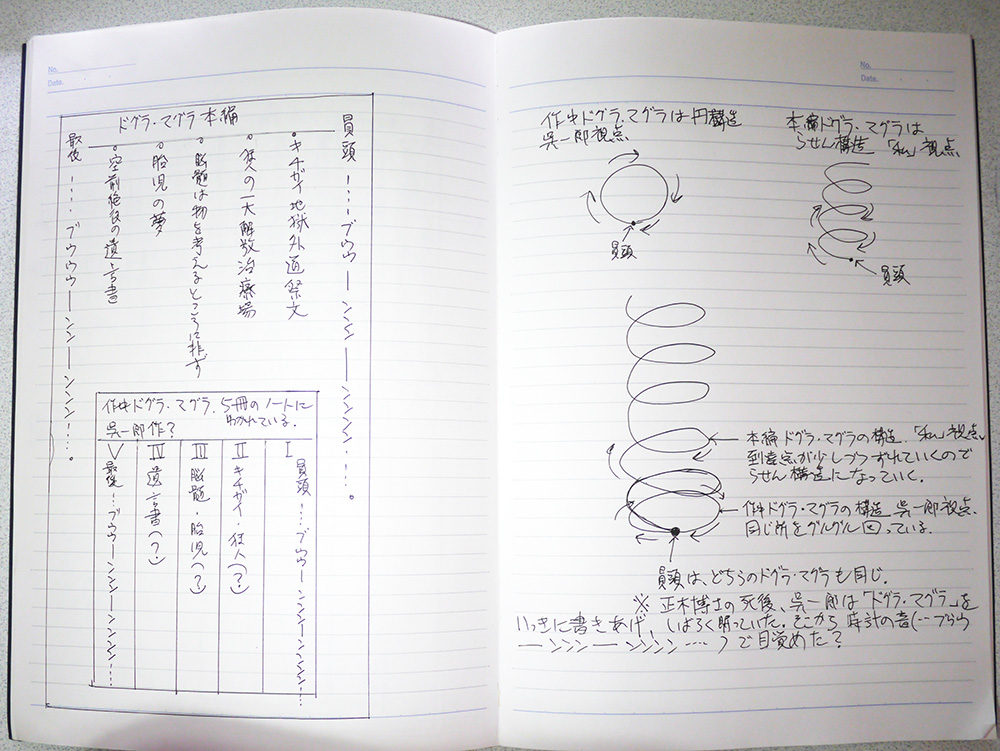 No.
Date.
ドグラ・マグラ本編
員頭 ‥‥ブウウ――ンンン――ンンンン‥‥。
・キチガイ地獄外道祭文
・狂人の一大解放治療場
・脳髄は物を考えるところに非ず
・胎児の夢
・空前絶後の遺言書
最後 ‥‥ブウウウ――ンン――ンンン‥‥。
作中ドグラ・マグラ、5冊のノートに
わかれている。
呉一郎作?
I 員頭‥‥ブウウ――ンンン――ンンンン‥‥
II キチガイ・狂人(?)
III 脳髄・胎児(?)
IV 遺言書(?)
V 最後‥‥ブウウ――ンンン――ンンンン‥‥
No.
Date.
作中ドグラ・マグラは円構造
呉一郎視点
員頭
本編ドグラ・マグラは
らせん構造 「私」視点
員頭
本編ドグラ・マグラの構造、「私」視点、
到達点が少しづつずれていくので
らせん構造になっていく。
作中ドグラ・マグラの構造 呉一郎視点、
同じ所をグルグル回っている。
員頭は、どちらのドグラ・マグラも同じ.
※ 正木博士の死後、呉一郎は「ドグラ・マグラ」を
いっきに書きあげ、しばらく眠っていた。そこから時計の音(‥‥ブウウ
――ンンン――ンンンン‥‥)で目覚めた?